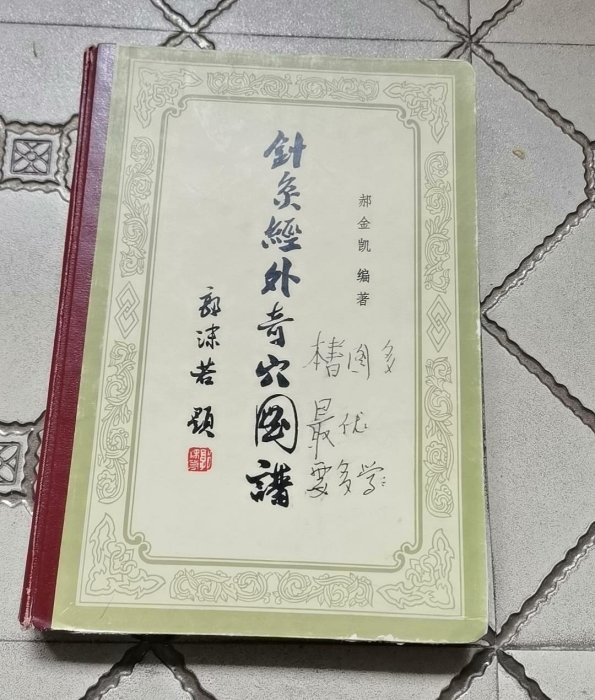 郝金凯 编著
針灸經外奇穴圖譜
郭沫若題
图多
最优
要多学